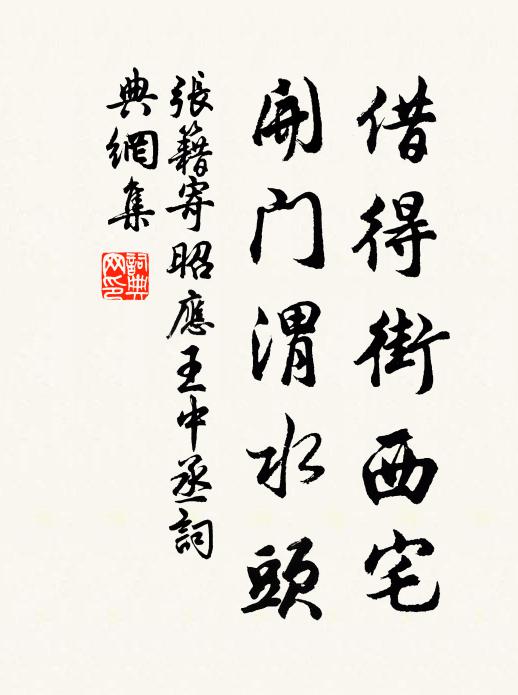 借得街西宅
開門渭水頭
張籍寄昭應王中丞詞
典網集
詞典
网印